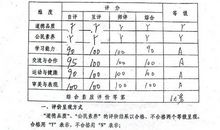 维度 评分 等级
自评 互评 师评 综合
道德品质 Y Y Y Y
公民素养 Y Y Y Y
学习能力 90 100 100 90 A
交流与合作 95 100 100 100 A
运动与健康 90 100 100 100 A
审美与表现 100 100 100 100 A
综合素质评价等第
一、评价呈现方式
“道德品质”、“公民素养”的评价结果以合格、不合格两个等级呈现,
合格用“Y”表示,不合格用“N”表示;